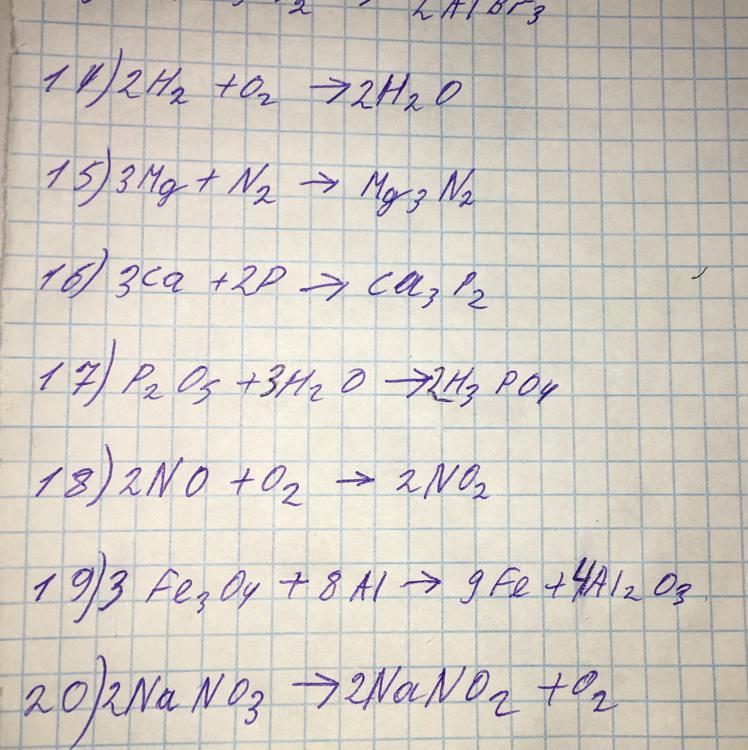 2AlBr₃
14) 2H₂ + O₂ → 2H₂O
15) 3Mg + N₂ → Mg₃N₂
16) 3Ca + 2P → Ca₃P₂
17) P₂O₅ + 3H₂O → 2H₃PO₄
18) 2NO + O₂ → 2NO₂
19) 3Fe₃O₄ + 8Al → 9Fe + 4Al₂O₃
20) 2NaNO₃ → 2NaNO₂ + O₂